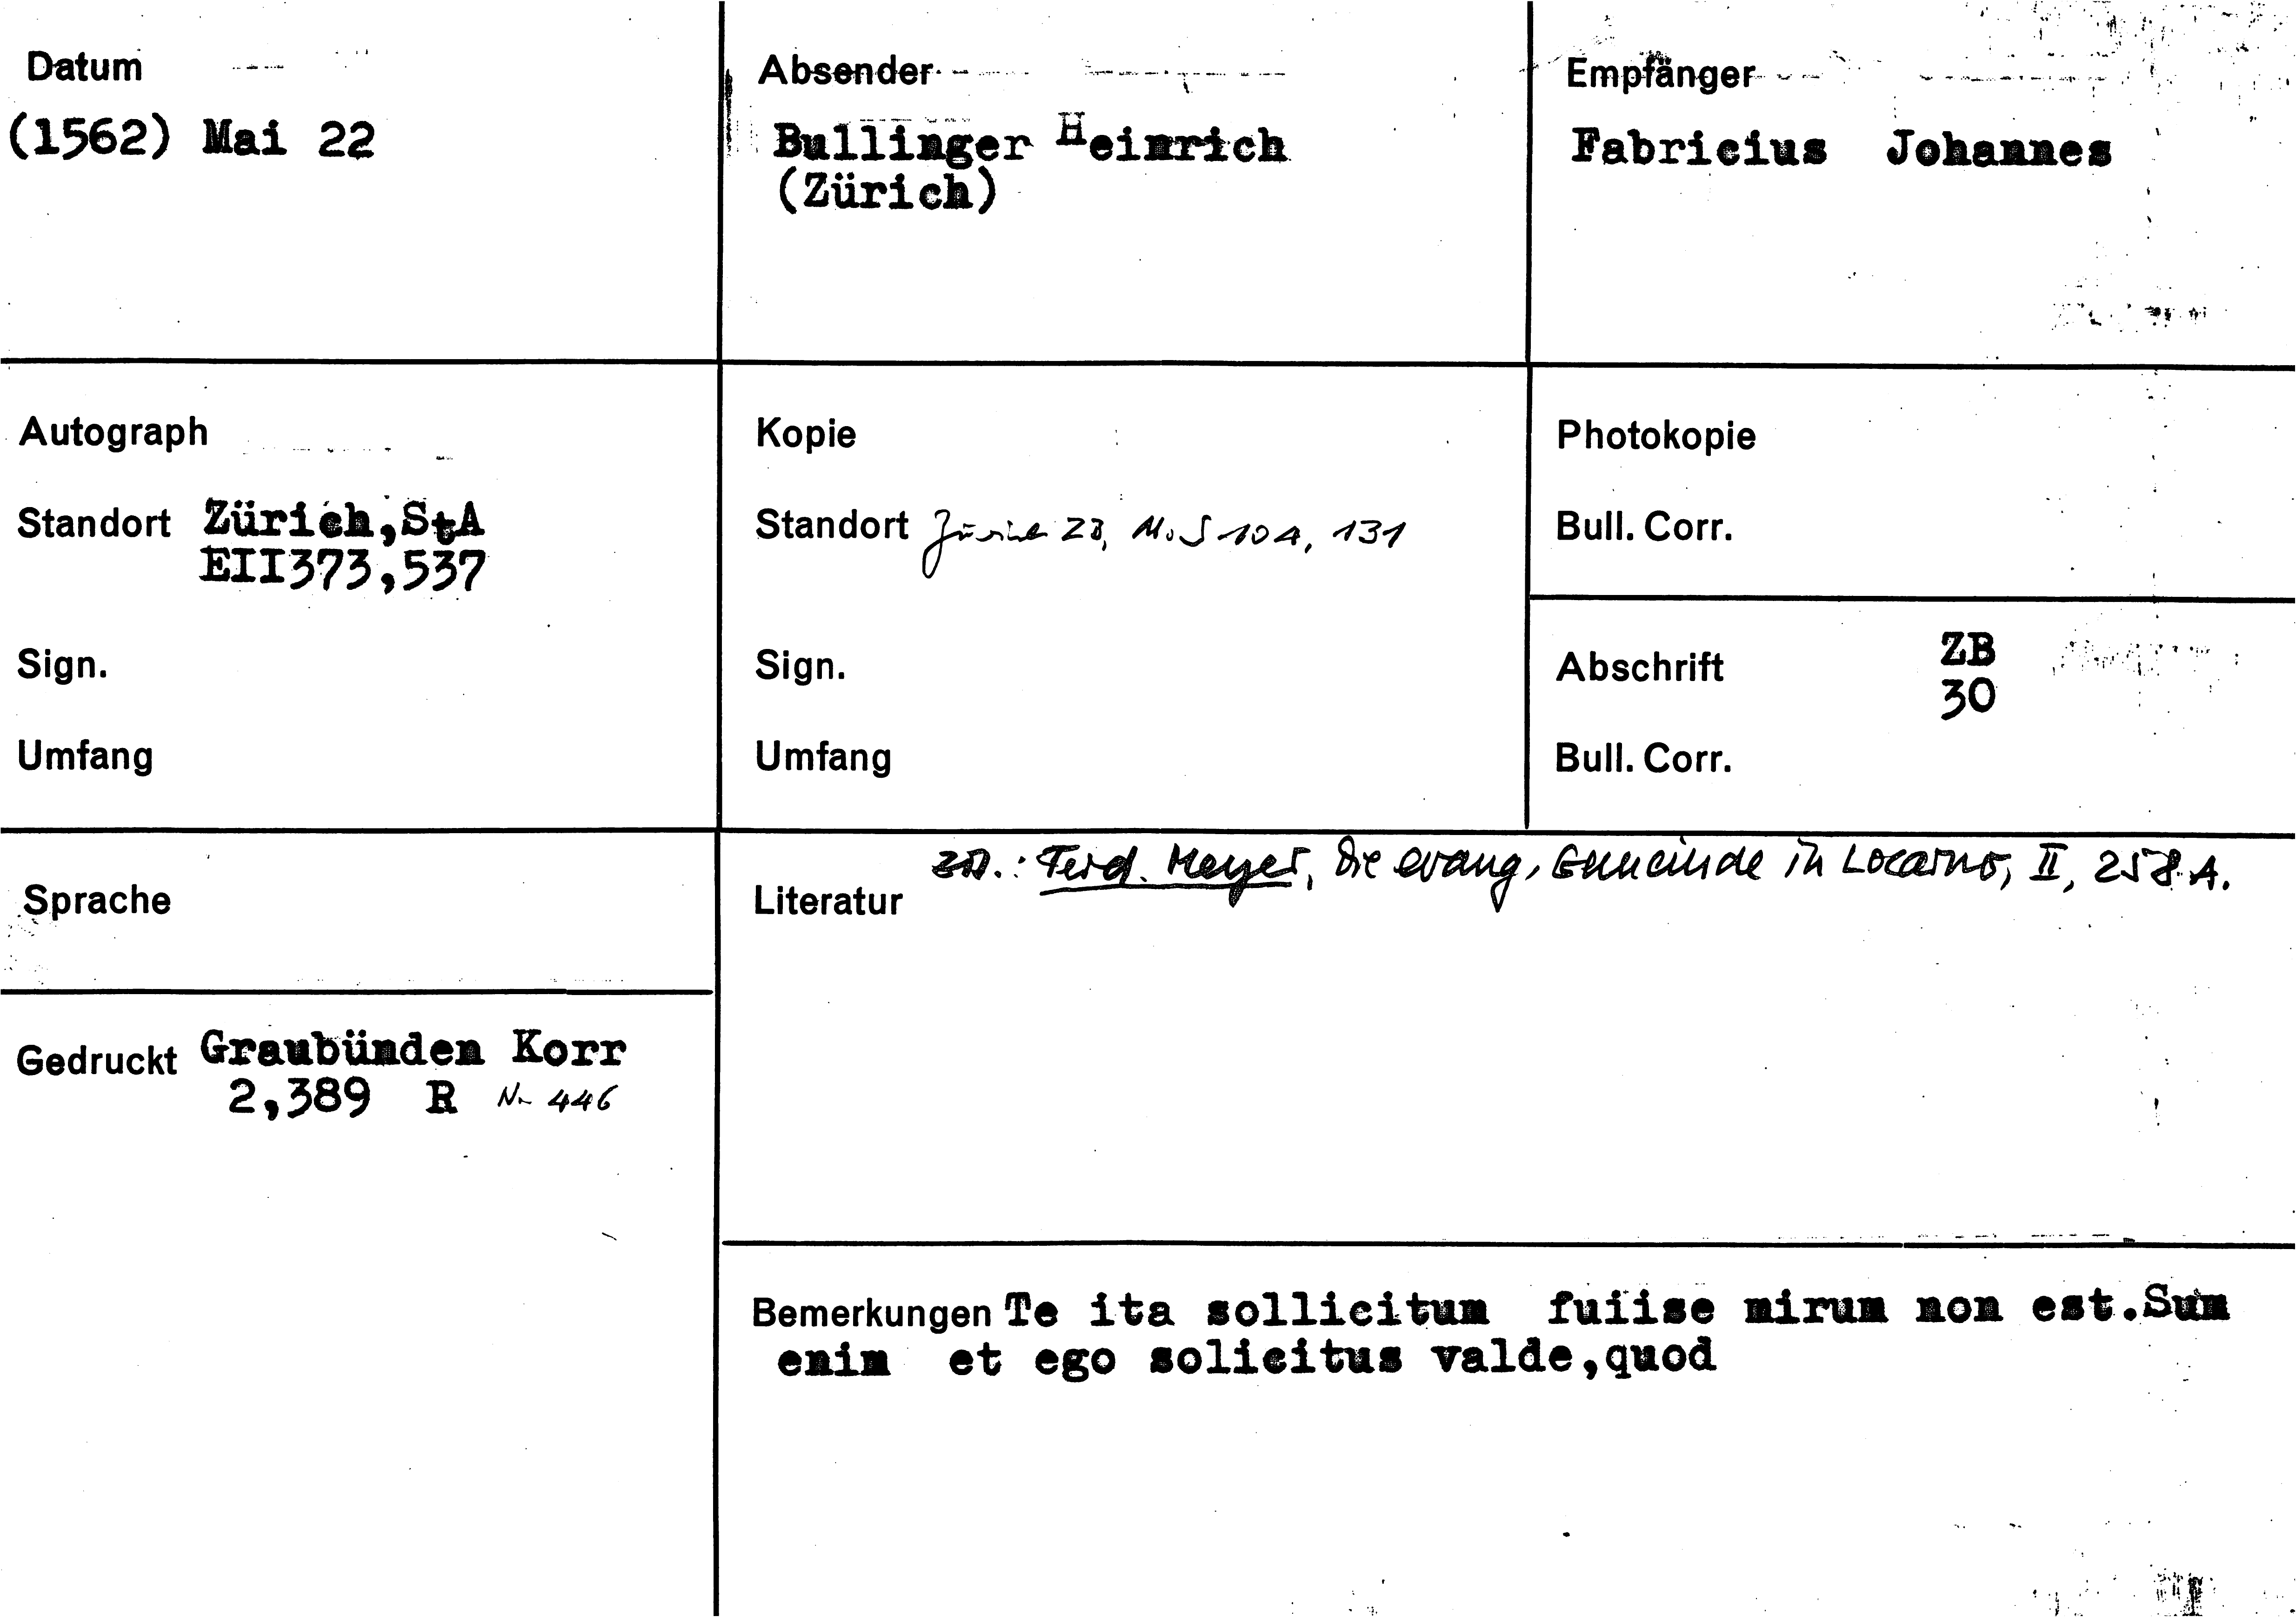 Datum
(1562) Mai 22
Absender
Bullinger Heinrich
(Zürich)
Empfänger
Fabricius Johannes
Autograph
Standort Zürich,StA
EII373,537
Sign.
Umfang
Kopie
Standort Zürich ZB, Ms S 104, 131
Sign.
Umfang
Photokopie
Bull. Corr.
Abschrift ZB
30
Bull. Corr.
Sprache
Gedruckt Graubünden Korr
2,389 R Nr 446
Literatur Ferd. Meyer, Die evang. Gemeinde in Locarno, II, 258 A.
Bemerkungen Te ita sollicitum fuiise mirum non est.Sum
enim et ego solicitus valde,quod